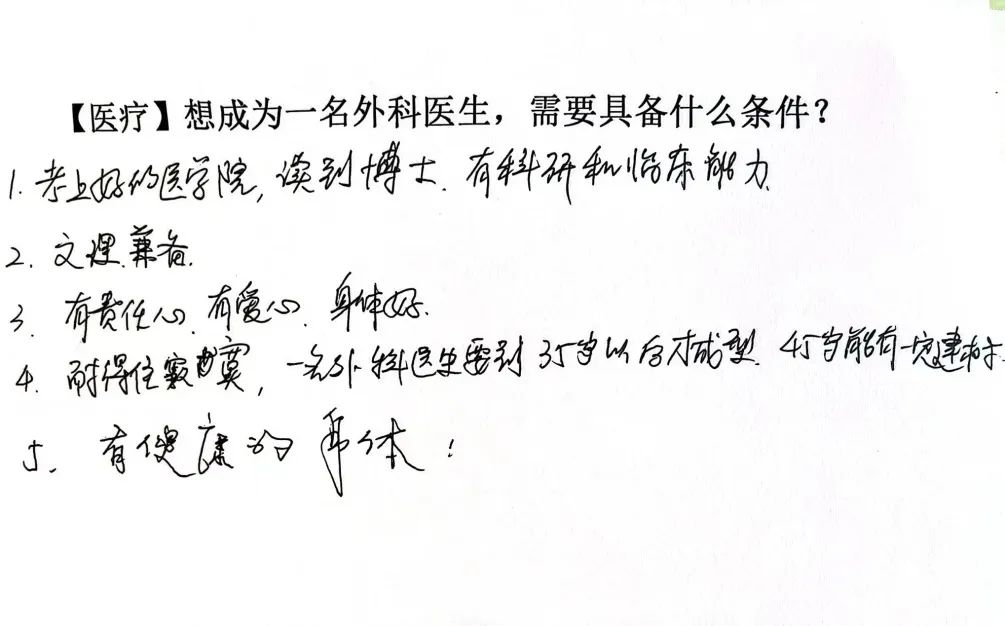 【医疗】想成为一名外科医生，需要具备什么条件？
1. 考上好的医学院，读到博士.有科研和临床能力.
2. 文理兼备.
3. 有责任心.有爱心.身体好.
4. 耐得住寂寞，一名外科医生要到35岁以后才成型.45岁能有一定建树.
5. 有健康的身体！